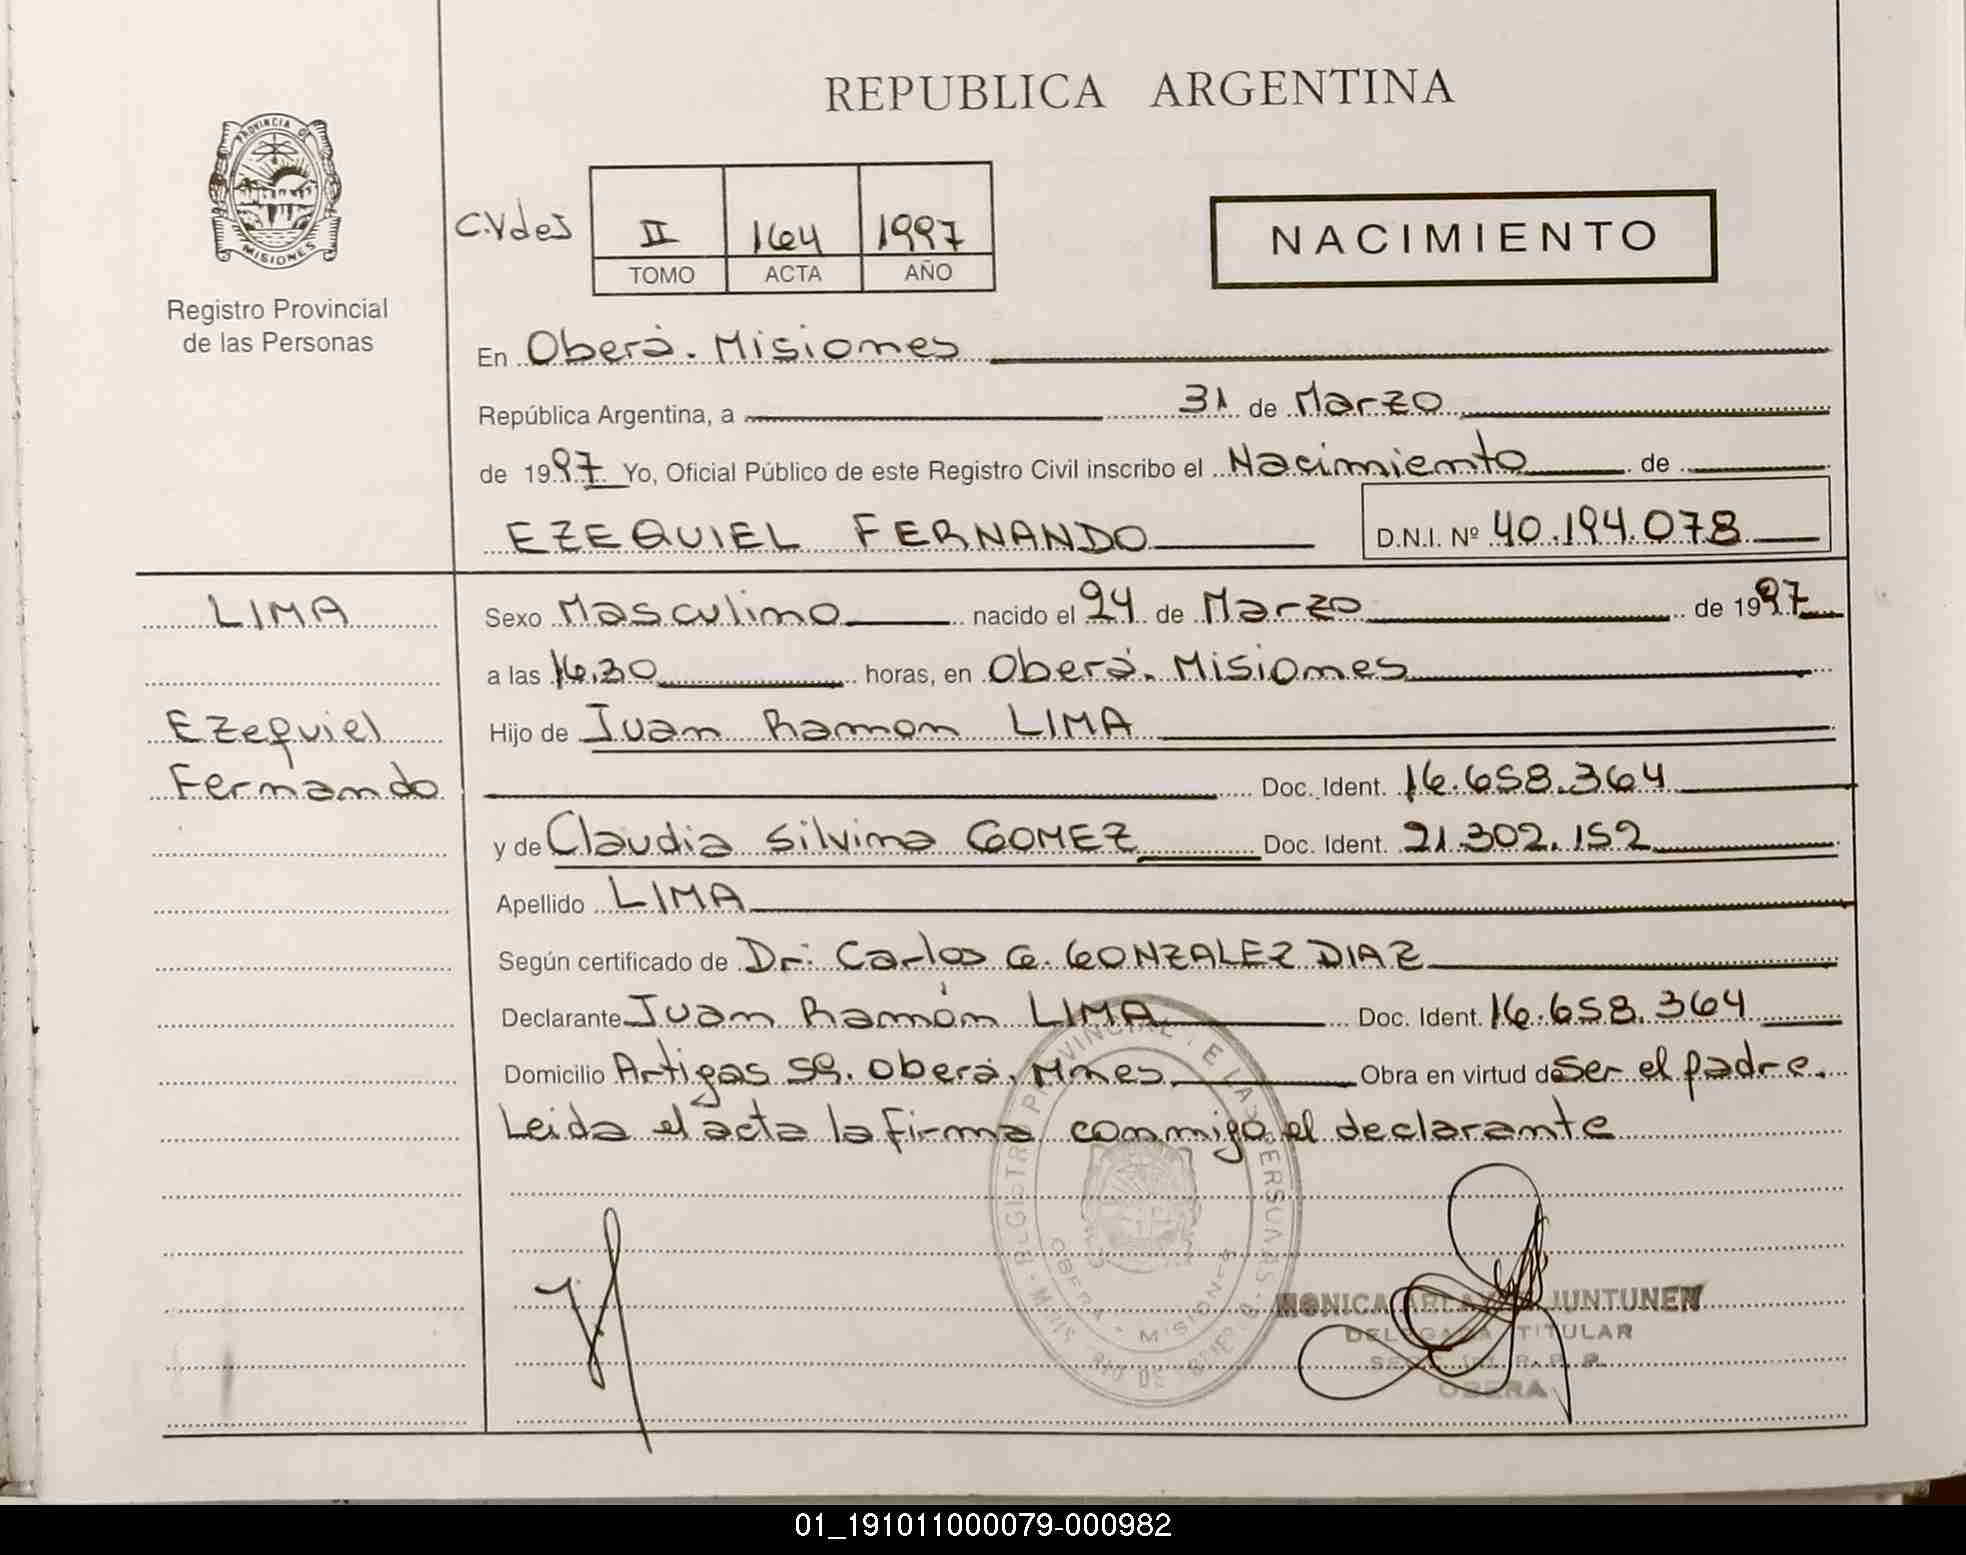 REPUBLICA ARGENTINA
PROVINCIA DE
MISIONES
Registro Provincial
de las Personas
C.VdeJ
II 164 1997
TOMO ACTA AÑO
NACIMIENTO
En Oberá. Misiones
República Argentina, a 31 de Marzo
de 1997 Yo, Oficial Público de este Registro Civil inscribo el Nacimiento de
EZEQUIEL FERNANDO D.N.I. Nº 40.194.078
LIMA
Ezequiel
Fernando
Sexo Masculino nacido el 24 de Marzo de 1997
a las 16,30 horas, en Oberá. Misiones
Hijo de Juan Ramon LIMA
Doc. Ident. 16.658.364
y de Claudia Silvina GOMEZ Doc. Ident. 21.302.152
Apellido LIMA
Según certificado de Dr: Carlos G. GONZALEZ DIAZ
Declarante Juan Ramón LIMA Doc. Ident. 16.658.364
Domicilio Artigas 59. Oberá. Mnes Obra en virtud de Ser el padre.
Leida el acta la firma conmigo el declarante
OBERA - MISIONES
MONICA JUNTUNEN
DELEGADA TITULAR
OBERA
01_191011000079-000982